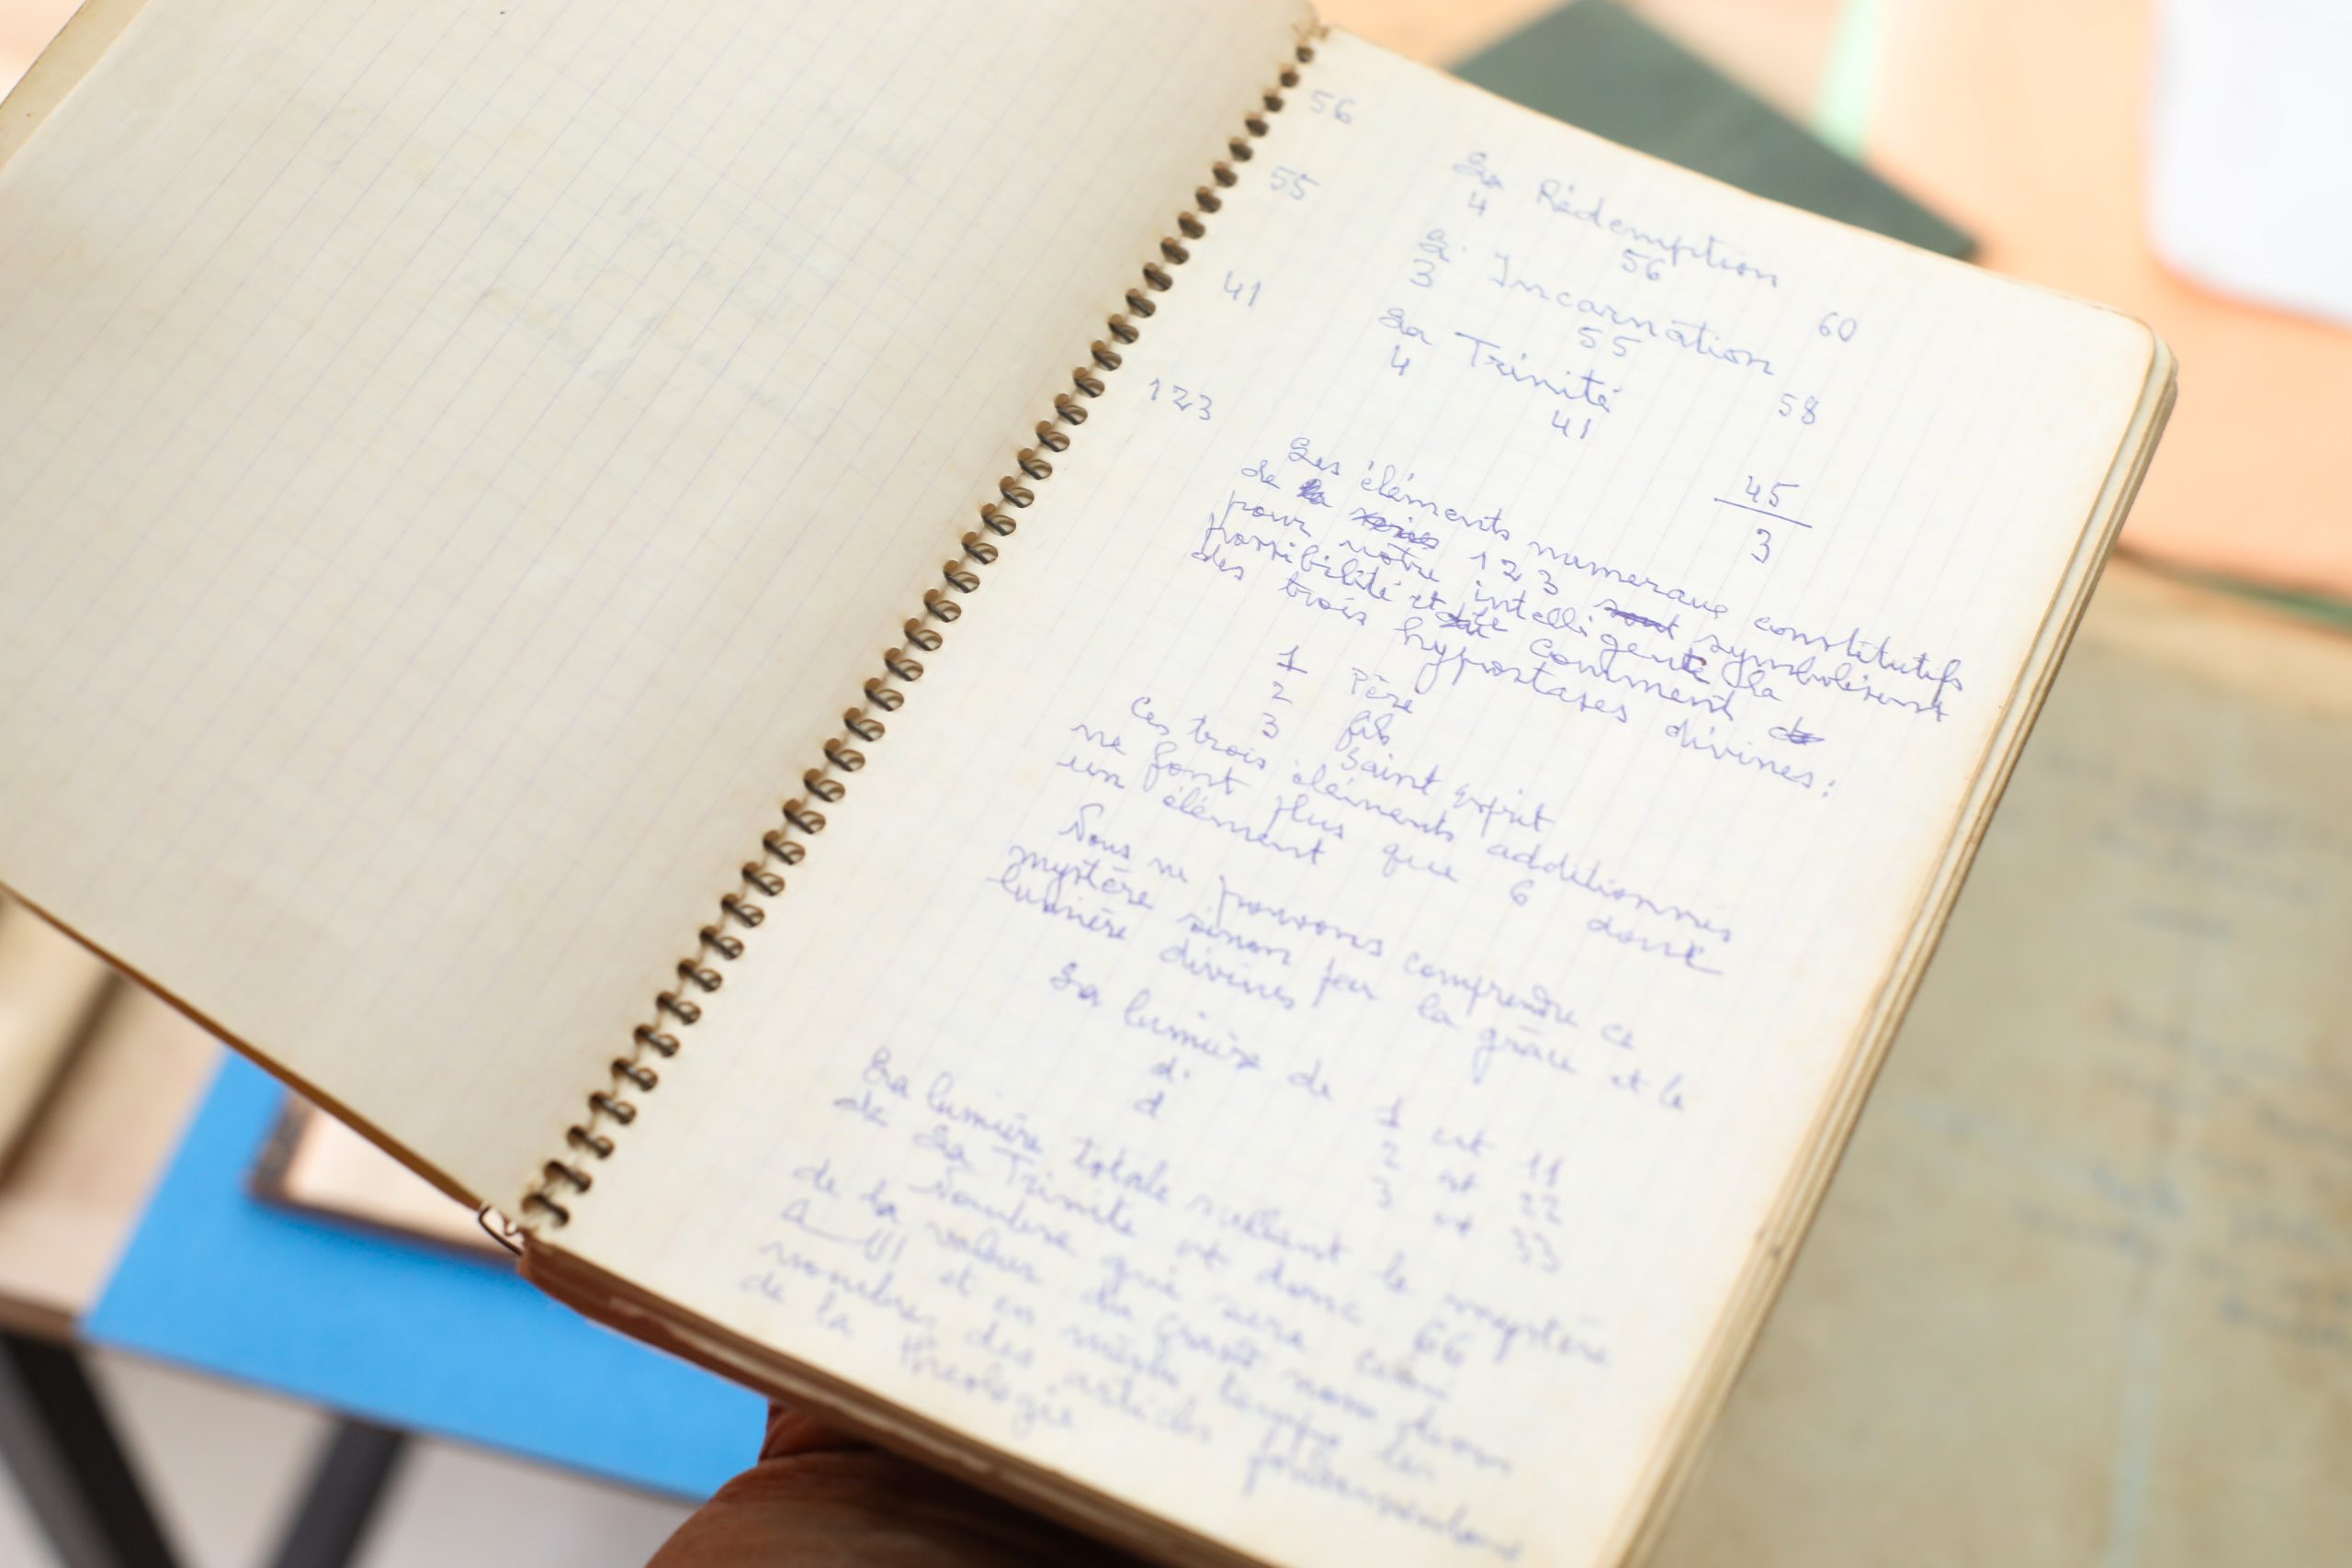 56
La Rédemption
4 56 60
55
L' Incarnation
3 55 58
41
La Trinité
4 41 45
123 3
Les éléments numeraux constitutifs
de la 123 symbolisent
pour nôtre intelligente la
possibilité et le comment
des trois hypostases divines :
1 Père
2 fils
3 Saint esprit
Ces trois éléments additionnés
ne font plus que 6 donc
un élément
Nous ne pouvons comprendre ce
mystère sinon par la grâce et la
lumière divines
La lumière de 1 est 11
d. 2 est 22
d 3 est 33
La lumière totale scellant le mystère
de La Trinité est donc 66
Nombre qui sera celui
de la valeur du Grand nom divin
et en même temps les
nombres des articles
de la theologie